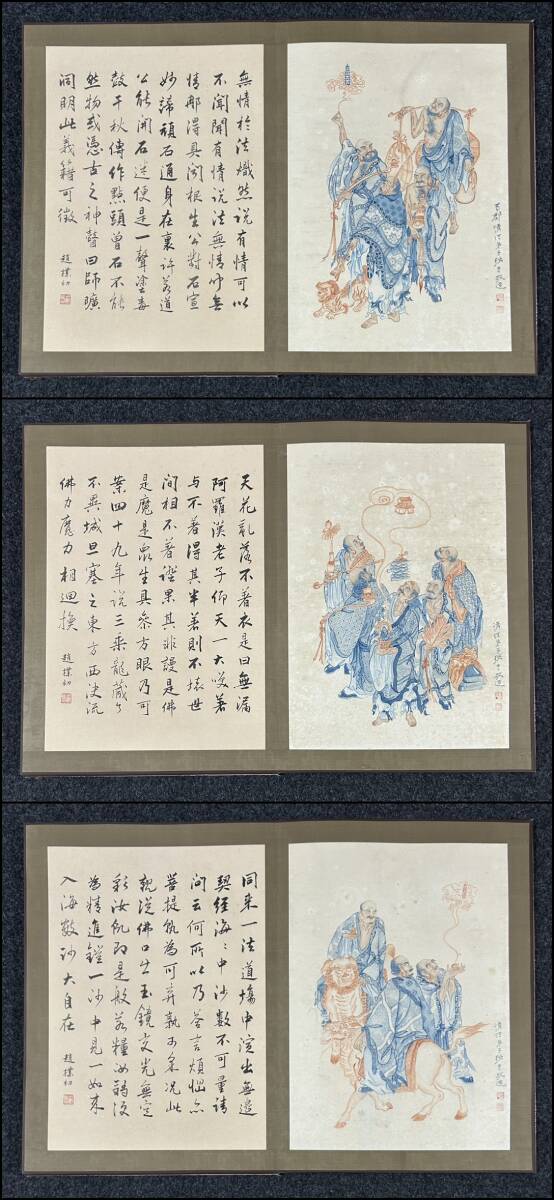 無情於法熾然說有情可以
不聞聞有情說法無情卻無
情那得具聞根生公對石宣
妙諦頑石通身在裏許若道
公能開石迷便是一聲塗毒
鼓千秋傳作點頭曾石不能
然物或憑古之神瞽曰師曠
同明此義籍可徵
趙樸初
清信弟子 敬造
天花亂落不著衣是曰無漏
阿羅漢老子仰天一大笑著
與不著得其半著則不壞世
間相不著證果其非謾是佛
是魔是眾生具參方眼乃可
案四十九年說三乘龍藏
不異城旦塞之東方西決流
佛力魔力相迴換
趙樸初
清信弟子 敬造
同來一法道場中演出無邊
契經海〻中沙數不可量請
問云何所以乃答言煩惱亦
菩提 為可棄孰可 況此
親從佛口生玉鏡交光無定
彩汝飢即是般若糧汝弱便
為精進鎧一沙中見一如來
入海數沙大自在
趙樸初
清信弟子 敬造